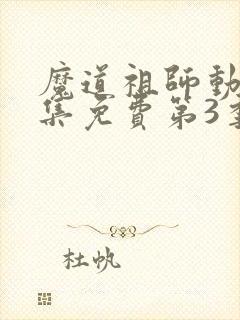 魔道祖師動
集免費第3季
杜帆